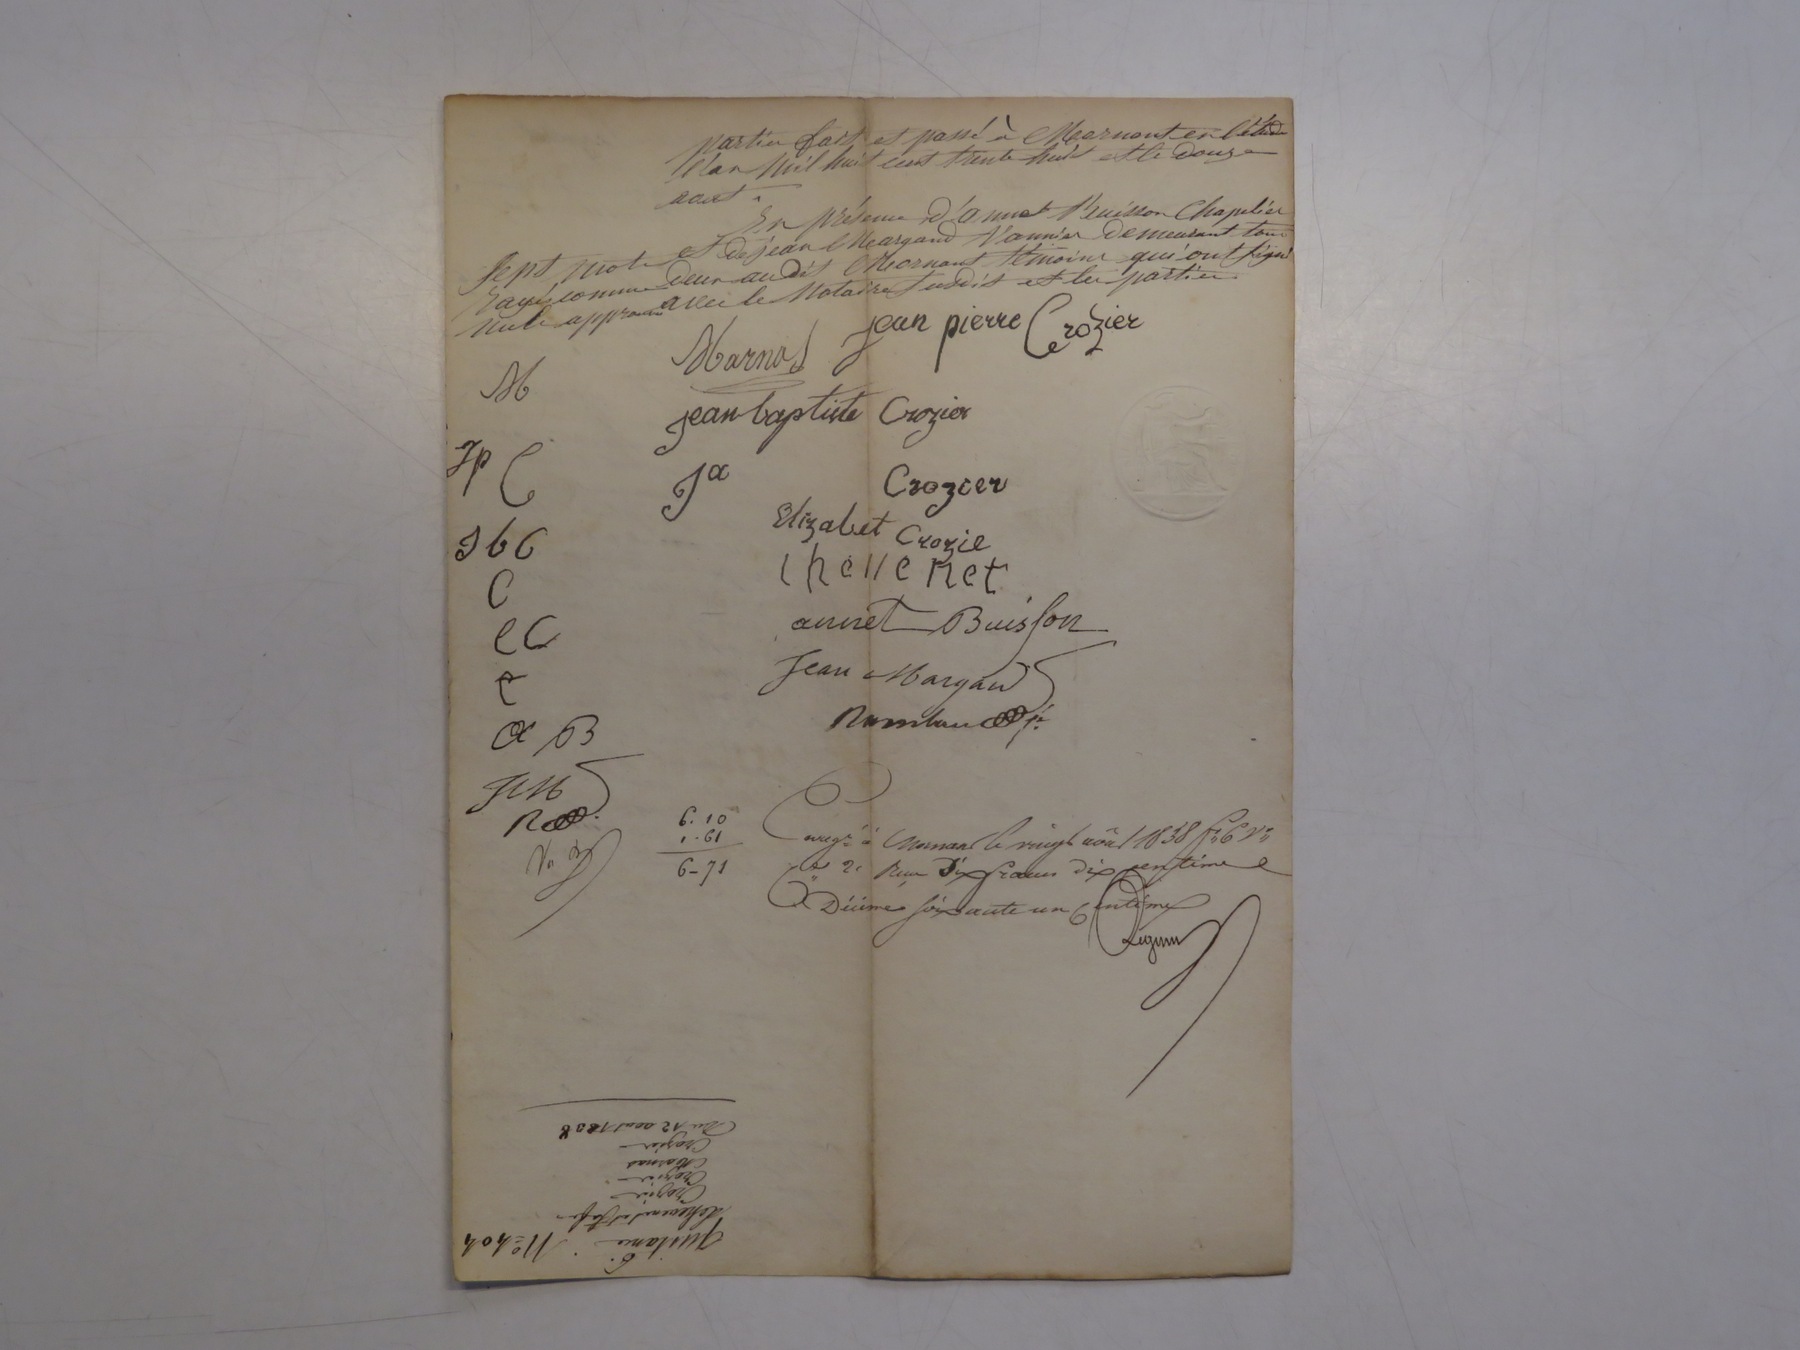 partie fait et passé à Mornant en l'étude
l'an mil huit cent trente huit et le douze
aout
En présence d'annet Buisson Chapelier
et de jean Margand Vannier demeurant tous
deux audit Mornant témoins qui ont signé
avec le Notaire susdit et les parties
sept mots
rayés comme
nuls approuvés
Marnas jean pierre Crozier
jean baptiste Crozier
Ja Crozier
Elizabet Crozie
thellenet
annet Buisson
Jean Margand
M
Jp C
JbC
C
EC
t
a B
JM
R
6.10
1.61
6-71
à Mornant le vingt août 1838 fo 6 Vo
Co 2. Reçu Six francs dix centime
Décime soixante un centime
No 404
quittance
Crozier
Crozier
Marnas
Crozier
Du 12 aout 1838